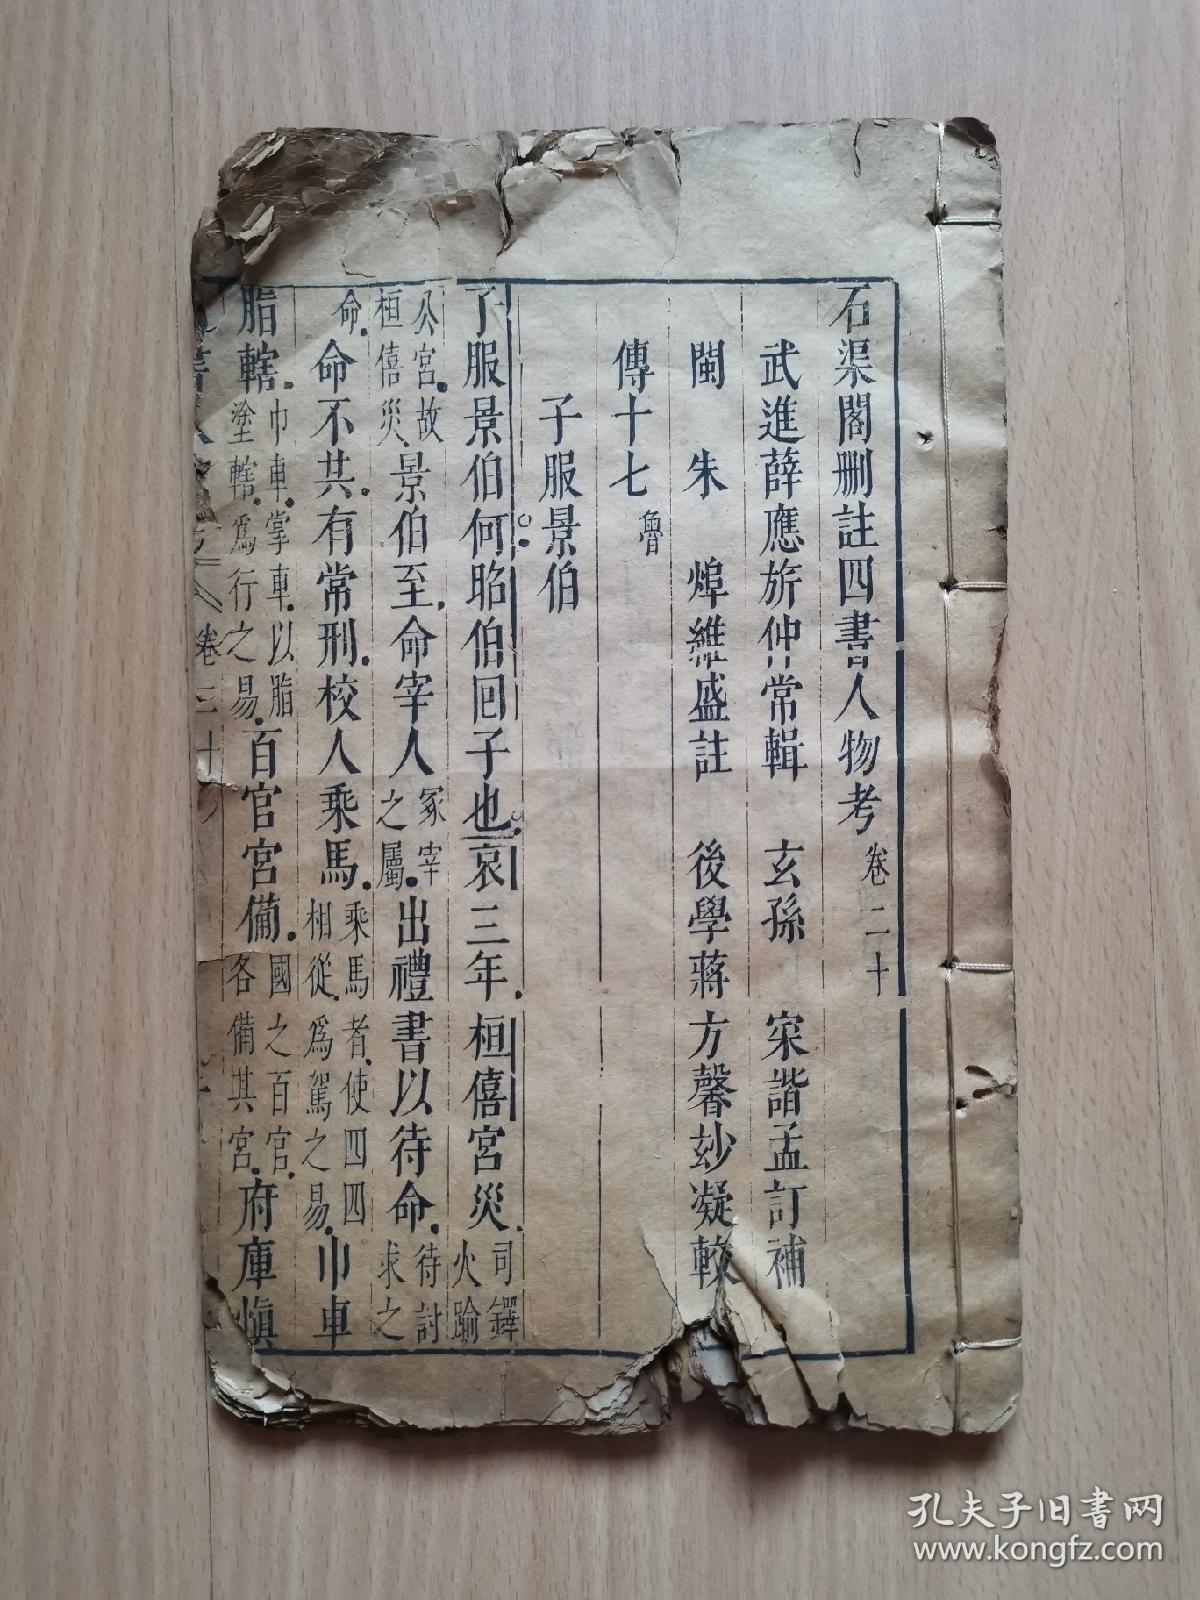 石渠閣刪註四書人物考 卷二十
武進薛應旂仲常輯 玄孫 寀諧孟訂補
閩 朱 焯維盛註 後學蔣方馨玅凝較
傳十七 魯
子服景伯
子服景伯何昭伯回子也哀三年桓僖宮災司鐸火踰
公宮故桓僖災景伯至命宰人冢宰之屬出禮書以待命待討求之
命命不共有常刑校人乘馬乘馬者使四四相從爲駕之易巾車
脂轄巾車掌車以脂塗轄爲行之易百官官備國之百官各備其官府庫慎
卷二十
孔夫子旧书网
www.kongfz.com